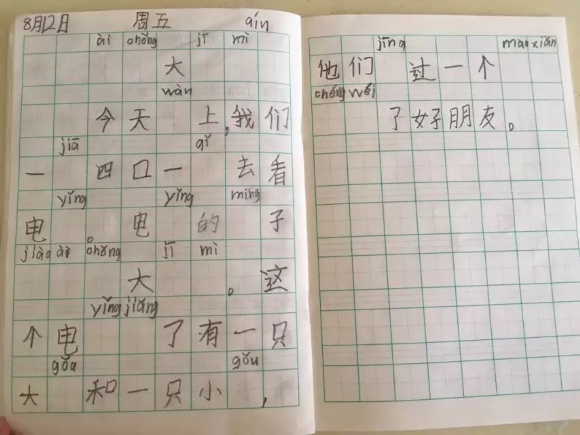 8月12日 周五 qín
ài chǒng jī mì
大
wàn
今天 上,我们
jiā qǐ
一 四口一 去看
yǐng yǐng míng
电 。电 的 子
jiào ài chǒng jī mì
大 。这
yǐng jiǎng
个电 了有一只
gǒu gǒu
大 和一只小 ,
jīng mào xiǎn
他们 过一个
chéng wéi
了好朋友。